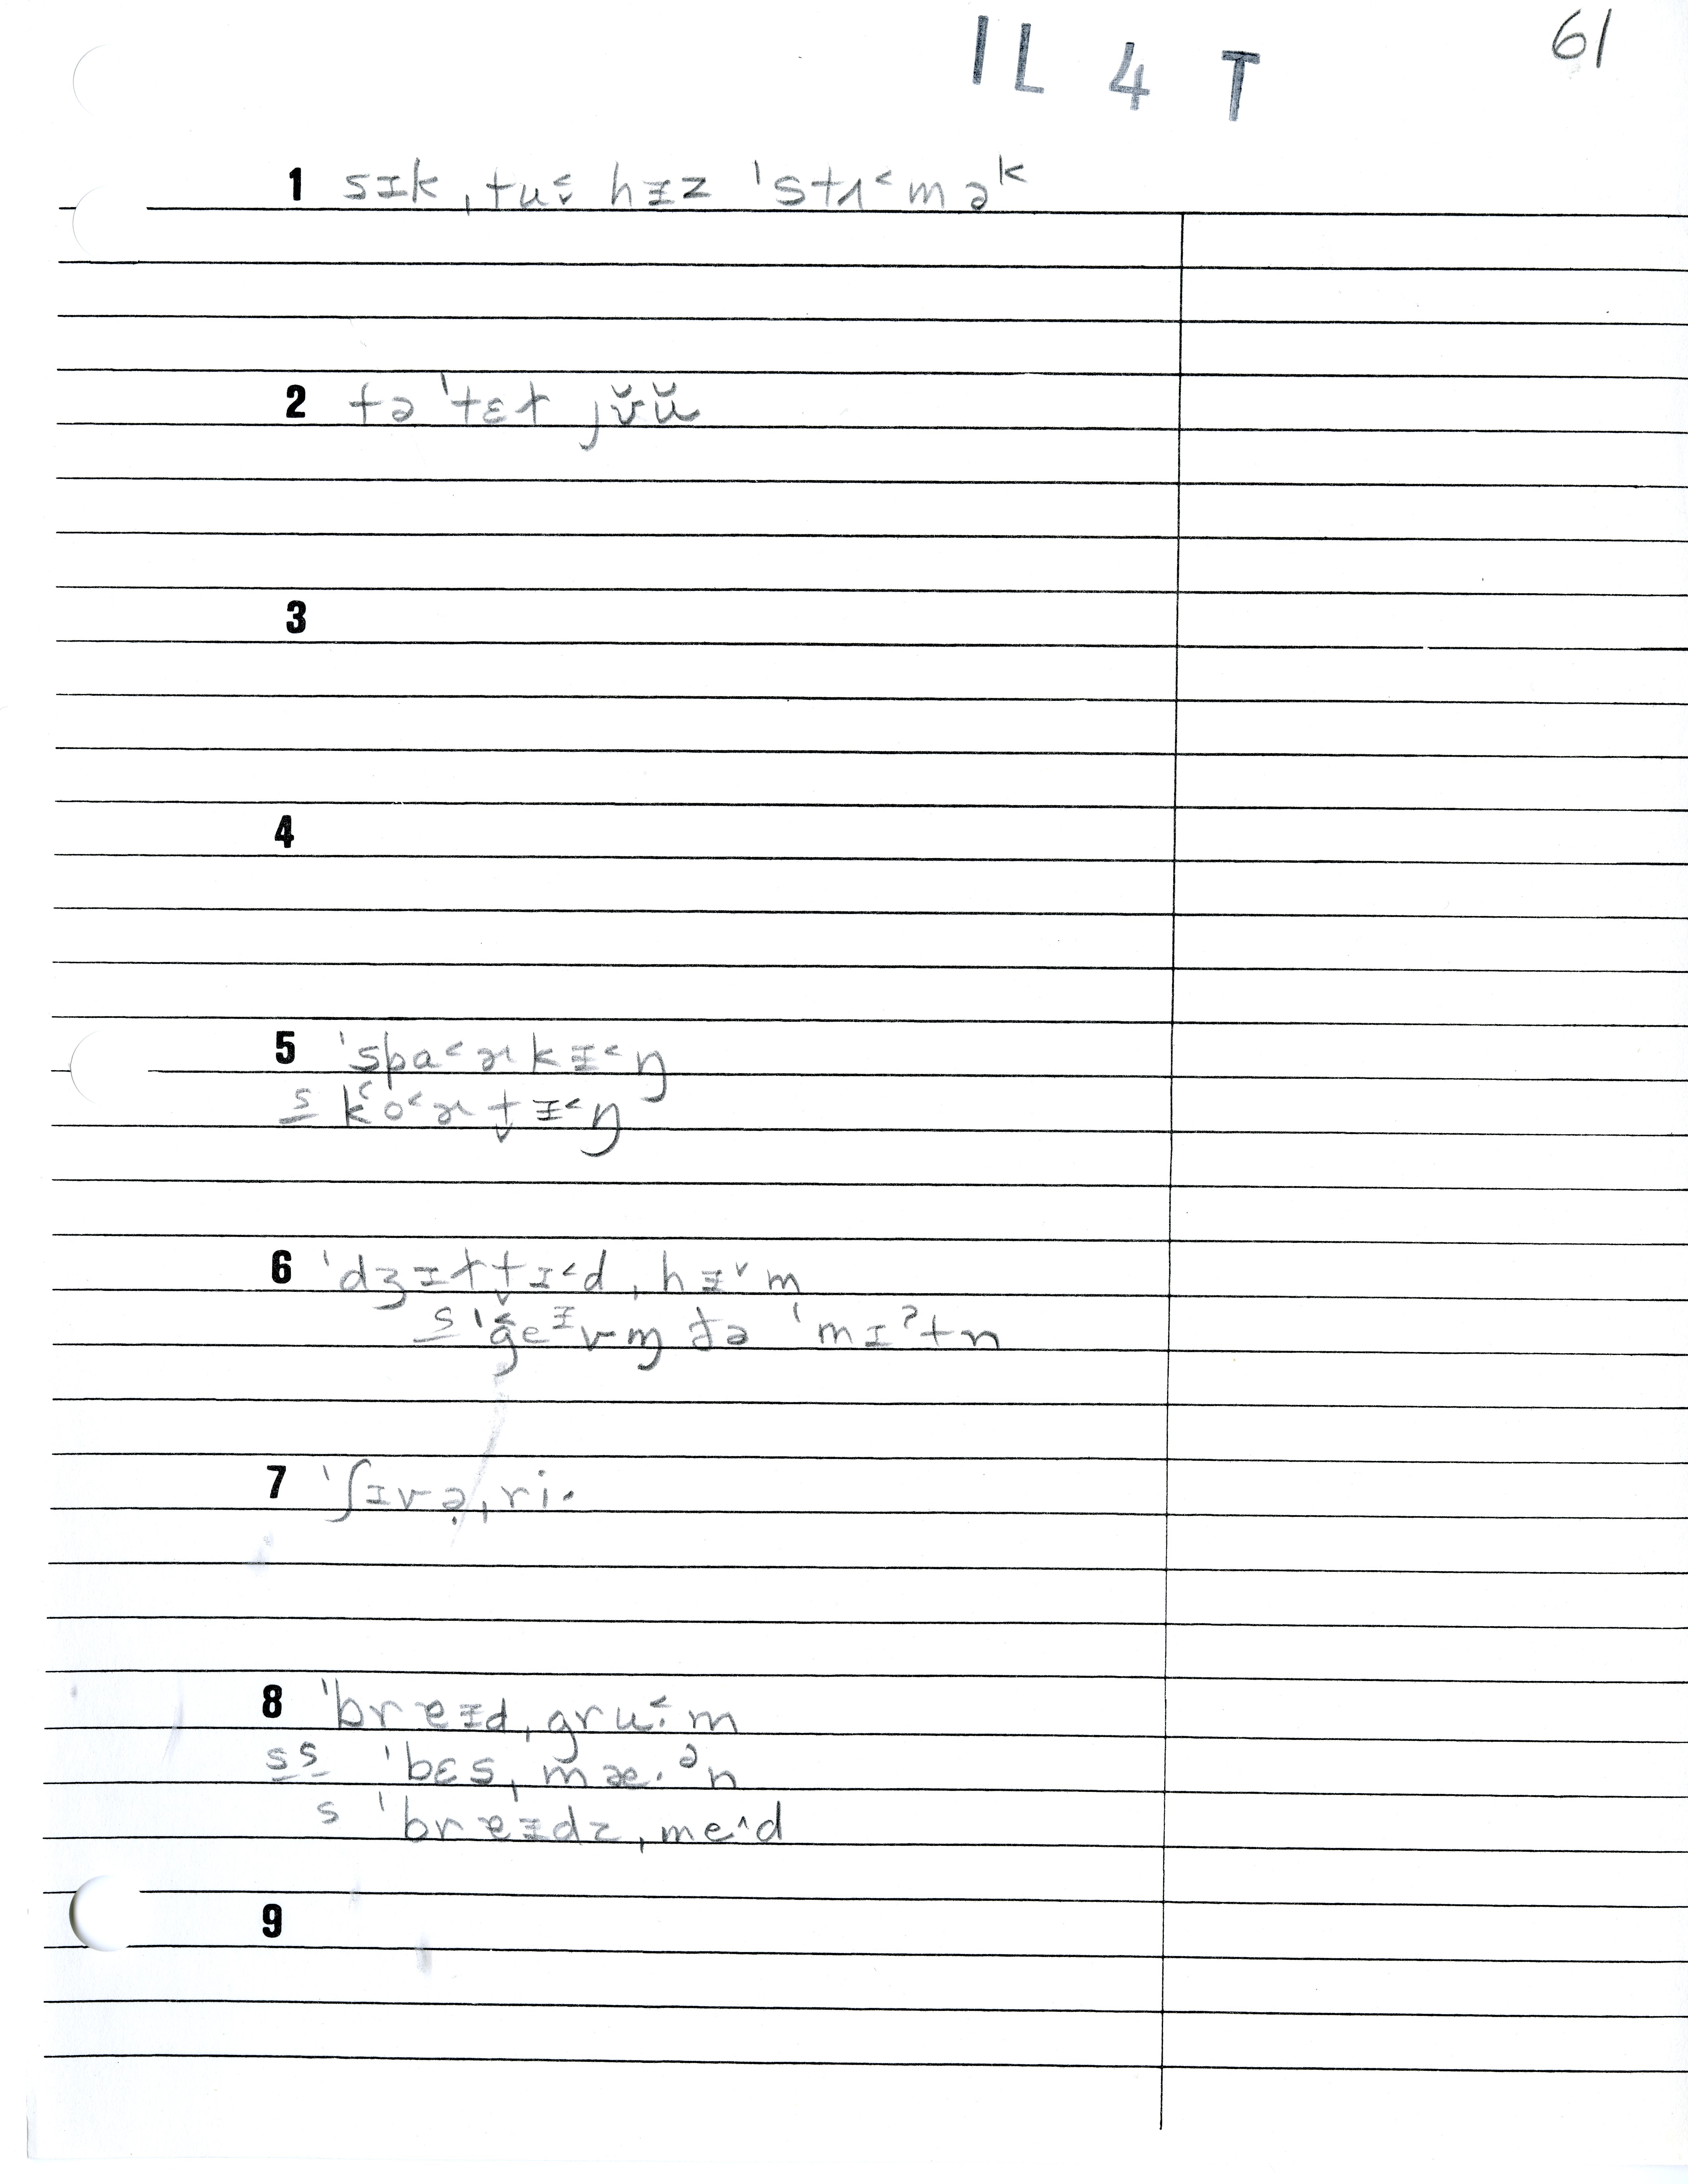 IL 4 T 61
1 sɪk ˌtu˂̬ hɪz ˈstʌ˂məᵏ
2 tə ˈtɛɫ jʊ̆ŭ
3
4
5 ˈspa˂ɚkɪ˂ŋ
s k˂o˂ɚt̬ɪ˂ŋ
6 ˈdʒɪɫt̬ɪ˂d ˌhɪ˅m
s ˈg̬˂eᶦvm̩ ðə ˈmɪˀtn
7 ˈʃɪvə̣ˌri·
8 ˈbrɐɪdˌgru˂·m
ss ˈbɛsˌmæ·ᵊn
s ˈbrɐɪdzˌme^d
9